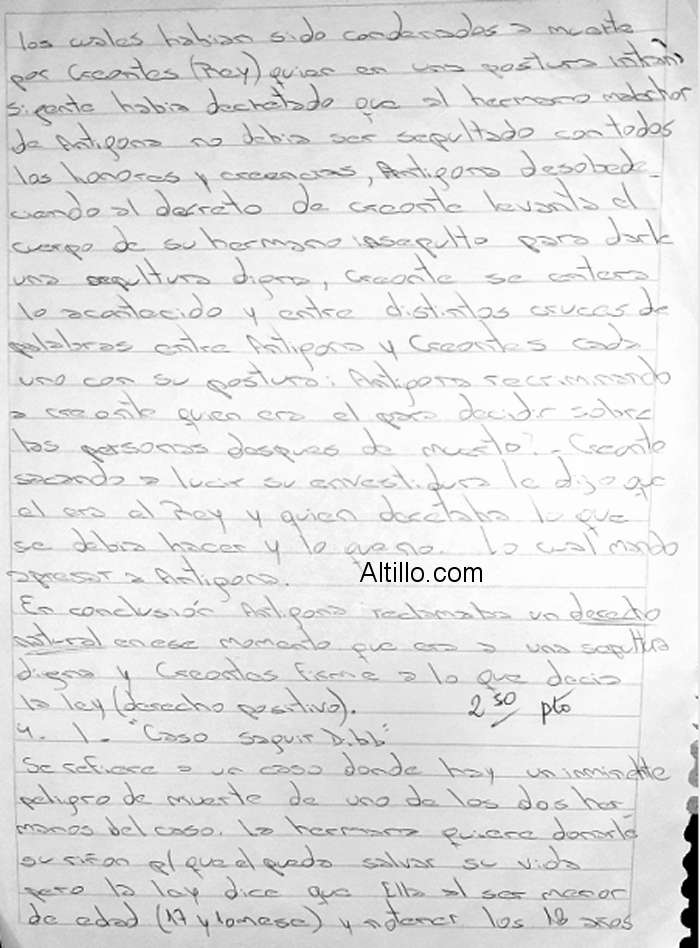 los cuales habian sido condenados a muerte
por Creontes (Rey) quien en una postura intran
sigente habia decretado que al hermano
de Antigona no debia ser sepultado con todos
los honores y creencias, Antigona desobede_
ciendo al decreto de creonte levanta el
cuerpo de su hermano insepulto para darle
una sepultura digna, Creonte se entera
lo acontecido y entre distintos cruces de
palabras entre Antigona y Creontes cada
uno con su postura: Antigona recriminando
a creonte quien era el para decidir sobre
las personas despues de muerto? - Creonte
sacando a lucir su envestidura le dijo que
el era el Rey y quien decretaba lo que
se debia hacer y lo que no. Lo cual mando
apresar a Antigona.
Altillo.com
En conclusión Antigona reclamaba un derecho
natural en ese momento que era a una sepultura
digna y Creontes firme a lo que decia
la ley (derecho positivo).
2 50 pto
4. 1. "Caso Saguir Dibb"
Se refiere a un caso donde hay un inminente
peligro de muerte de uno de los dos her
manos del caso. La hermana quiere donarle
su riñon pl que el pueda salvar su vida
pero la ley dice que Ella al ser menor
de edad (17 y 10 mese) y no tener los 18 años